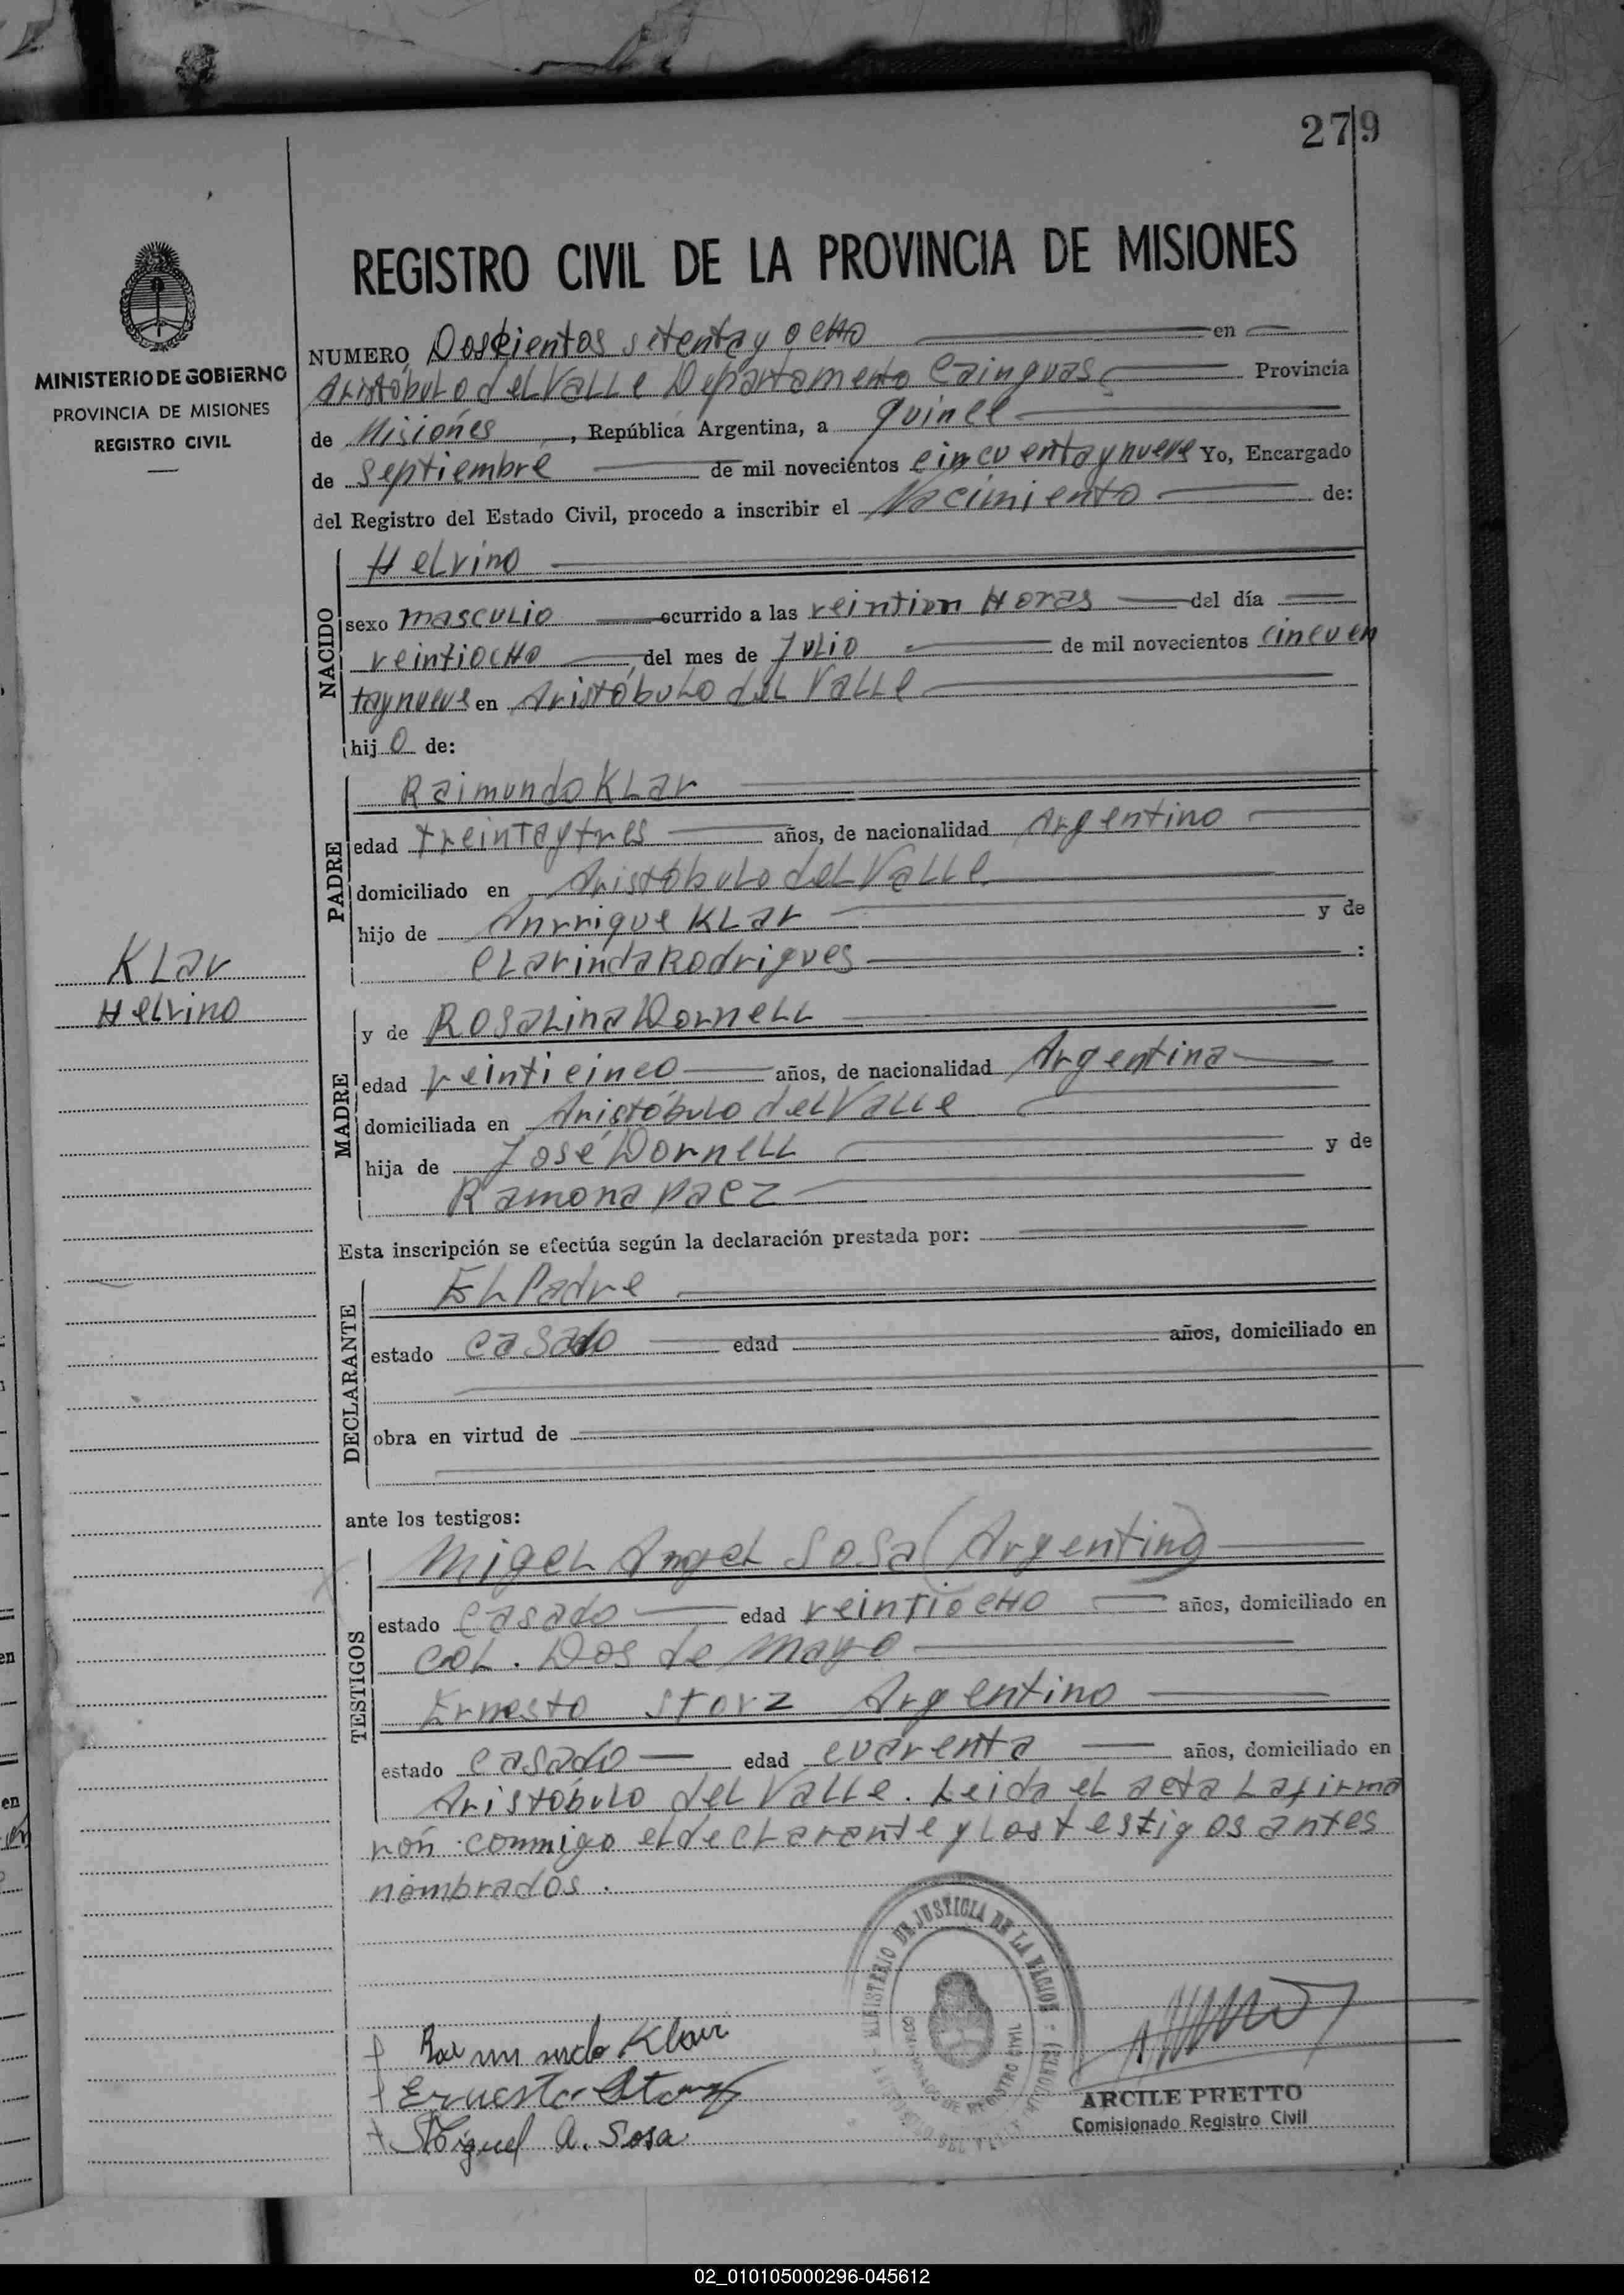 279
MINISTERIO DE GOBIERNO
PROVINCIA DE MISIONES
REGISTRO CIVIL
REGISTRO CIVIL DE LA PROVINCIA DE MISIONES
NUMERO Doscientos setenta y ocho en
Aristóbulo del Valle Departamento Cainguas Provincia
de Misiones, República Argentina, a quince
de septiembre de mil novecientos cincuenta y nueve Yo, Encargado
del Registro del Estado Civil, procedo a inscribir el Nacimiento de:
NACIDO
Helvino
sexo masculio ocurrido a las veintiun Horas del día
veintiocho del mes de Julio de mil novecientos cincuen
ta y nueve en Aristóbulo del Valle
hijo de:
PADRE
Raimundo Klar
edad treinta y tres años, de nacionalidad Argentino
domiciliado en Aristóbulo del Valle
hijo de Anrrique Klar y de
Clarinda Rodrigues :
Klar
Helvino
MADRE
y de Rosalina Dornell
edad veinticinco años, de nacionalidad Argentina
domiciliada en Aristóbulo del Valle
hija de José Dornell y de
Ramona Paez
Esta inscripción se efectúa según la declaración prestada por:
DECLARANTE
El Padre
estado casado edad años, domiciliado en
obra en virtud de
ante los testigos:
TESTIGOS
Migel Angel Sosa (Argentino)
estado casado edad veintiocho años, domiciliado en
Col. Dos de Mayo
Ernesto Storz Argentino
estado casado edad cuarenta años, domiciliado en
Aristóbulo del Valle. Leida el acta La firma
rón conmigo el declarante y los testigos antes
nombrados.
MINISTERIO DE JUSTICIA DE LA NACION
REGISTRO CIVIL
Raimundo Klar
Ernesto Storz
Miguel A. Sosa
ARCILE PRETTO
Comisionado Registro Civil
02_010105000296-045612